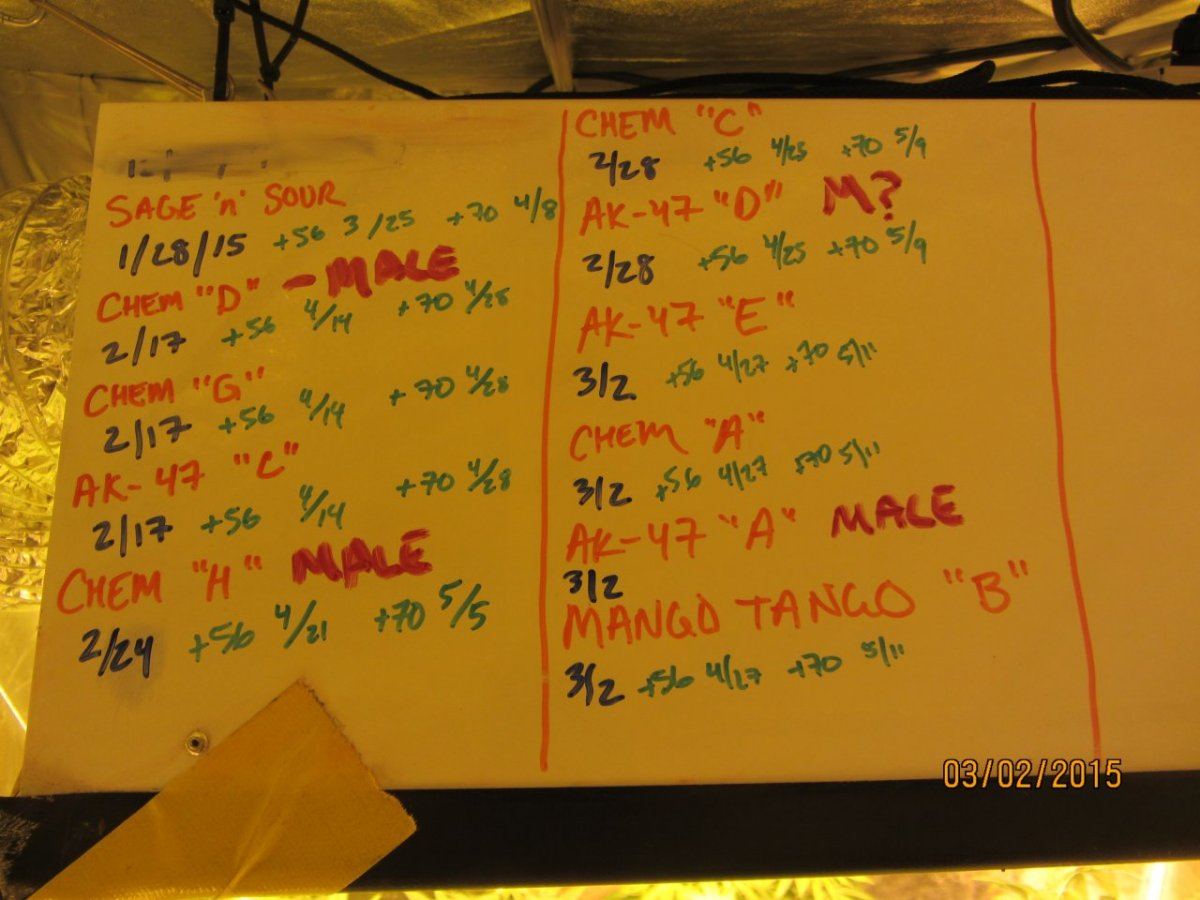 SAGE 'n' SOUR
1/28/15 +56 3/25 +70 4/8
CHEM "D" - MALE
2/17 +56 4/14 +70 4/28
CHEM "G"
2/17 +56 4/14 +70 4/28
AK-47 "C"
2/17 +56 4/14 +70 4/28
CHEM "H" MALE
2/24 +56 4/21 +70 5/5
CHEM "C"
2/28 +56 4/25 +70 5/9
AK-47 "D" M?
2/28 +56 4/25 +70 5/9
AK-47 "E"
3/2 +56 4/27 +70 5/11
CHEM "A"
3/2 +56 4/27 +70 5/11
AK-47 "A" MALE
3/2
MANGO TANGO "B"
3/2 +56 4/27 +70 5/11
03/02/2015